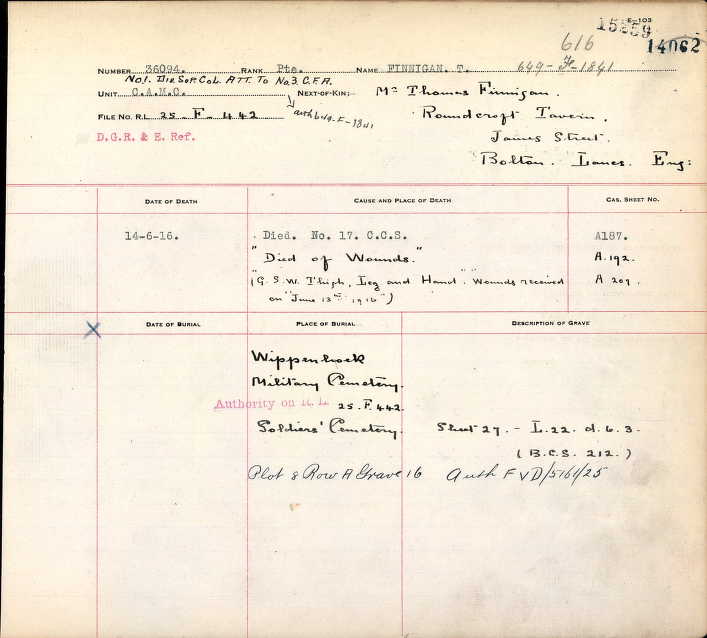 E-103
15859
616
14062
NUMBER 36094. RANK Pte. NAME FINNIGAN. T. 649-F-1841
No.1. Div. Sup. Col. ATT. To No.3. C.F.A.
UNIT C.A.M.C. NEXT-OF-KIN: Mr Thomas Finnigan.
FILE NO. R.L. 25. F. 442 auth 649-F-1841 Roundcroft Tavern,
D.G.R. & E. Ref. James Street.
Bolton. Lancs. Eng:
DATE OF DEATH CAUSE AND PLACE OF DEATH CAS. SHEET NO.
14-6-16. Died. No. 17. C.C.S. A187.
"Died of Wounds." A.192.
"(G.S.W. Thigh, Leg and Hand". Wounds received A 209.
on "June 13th 1916")
DATE OF BURIAL PLACE OF BURIAL DESCRIPTION OF GRAVE
Wippenhoek
Military Cemetery.
Authority on R.L. 25. F. 442.
Soldiers' Cemetery. Sheet 27. - L. 22. d. 6. 3.
(B.C.S. 212.)
Plot 8 Row A Grave 16 Auth F V D/5161/25